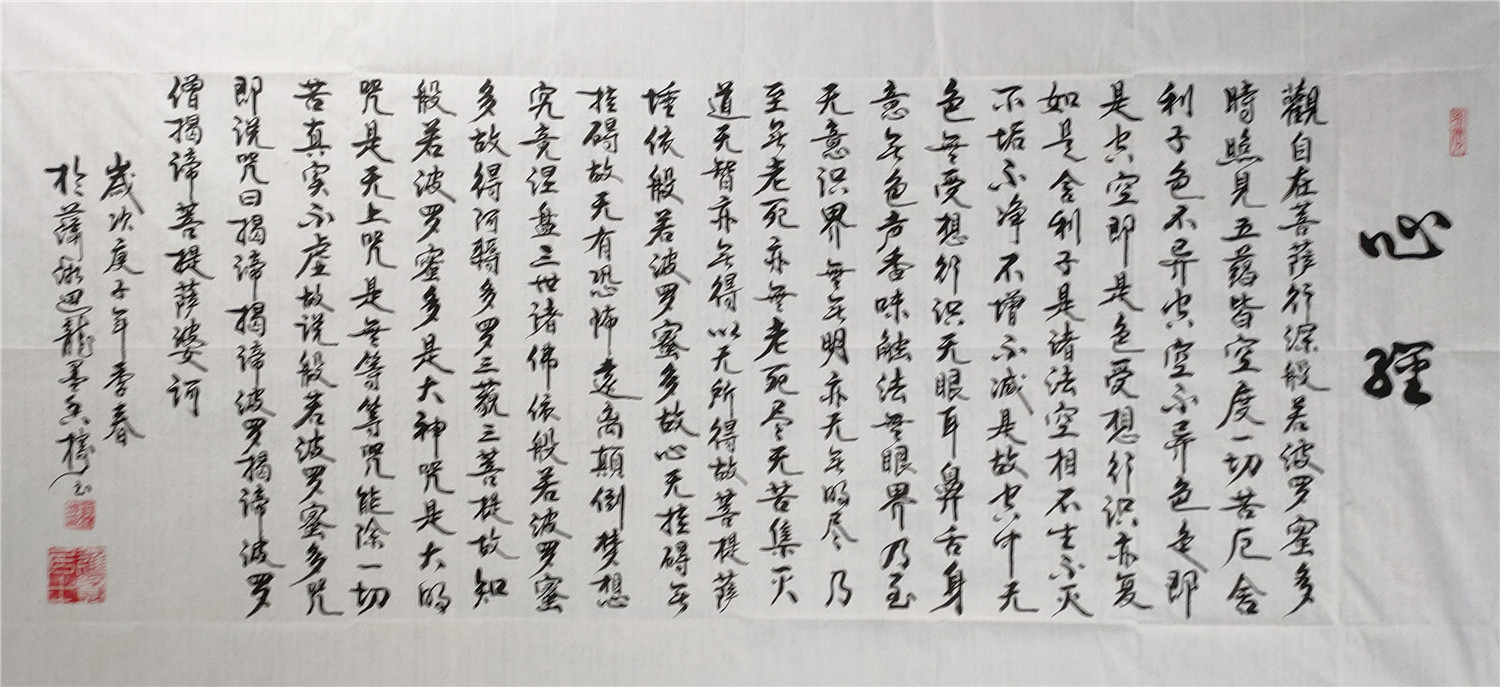 心经
觀自在菩萨行深般若波罗蜜多
時照見五蕴皆空度一切苦厄舍
利子色不异空空不异色色即
是空空即是色受想行识亦复
如是舍利子是诸法空相不生不灭
不垢不净不增不减是故空中无
色無受想行识无眼耳鼻舌身
意无色声香味触法無眼界乃至
无意识界無无明亦无无明尽乃
至无老死亦無老死尽无苦集灭
道无智亦无得以无所得故菩提萨
埵依般若波罗蜜多故心无挂碍无
挂碍故无有恐怖遠离顛倒梦想
究竟涅盘三世诸佛依般若波罗蜜
多故得阿耨多罗三藐三菩提故知
般若波罗蜜多是大神咒是大明
咒是无上咒是無等等咒能除一切
苦真实不虚故说般若波罗蜜多咒
即说咒曰揭谛揭谛波罗揭谛波罗
僧揭谛菩提萨婆诃
岁次庚子年季春
於萍